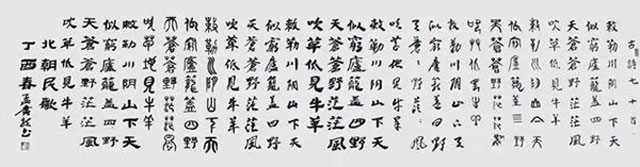 敕勒川阴山下天
似穹廬籠蓋四野
天蒼蒼野茫茫風
吹草低見牛羊
敕勒川阴山下天
似穹廬籠蓋四野
天蒼蒼野茫茫風
吹草低見牛羊
敕勒川阴山下天
似穹廬籠蓋四野
天蒼蒼野茫茫風
吹草低見牛羊
敕勒川阴山下天
似穹廬籠蓋四野
天蒼蒼野茫茫風
吹草低見牛羊
敕勒川阴山下天
似穹廬籠蓋四野
天蒼蒼野茫茫風
吹草低見牛羊
敕勒川阴山下天
似穹廬籠蓋四野
天蒼蒼野茫茫風
吹草低見牛羊
敕勒川阴山下天
似穹廬籠蓋四野
天蒼蒼野茫茫風
吹草低見牛羊
北朝民歌
丁酉春